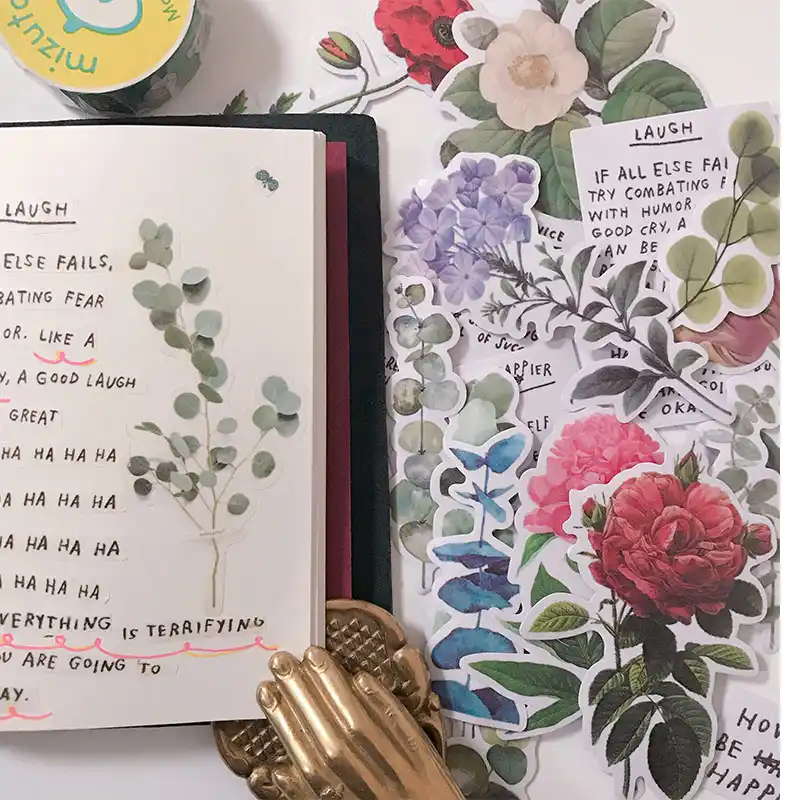 mizuto
LAUGH
ELSE FAILS,
BATING FEAR
OR. LIKE A
Y, A GOOD LAUGH
GREAT
HA HA HA HA
A HA HA HA
HA HA HA HA
HA HA HA
VERYTHING IS TERRIFYING
OU ARE GOING TO
AY.
LAUGH
IF ALL ELSE FAI
TRY COMBATING F
WITH HUMOR.
GOOD CRY, A
AN BE
NICE
OF SUC
APPIER
ELF
GOI
OKA
HOW
BE HA
HAPP